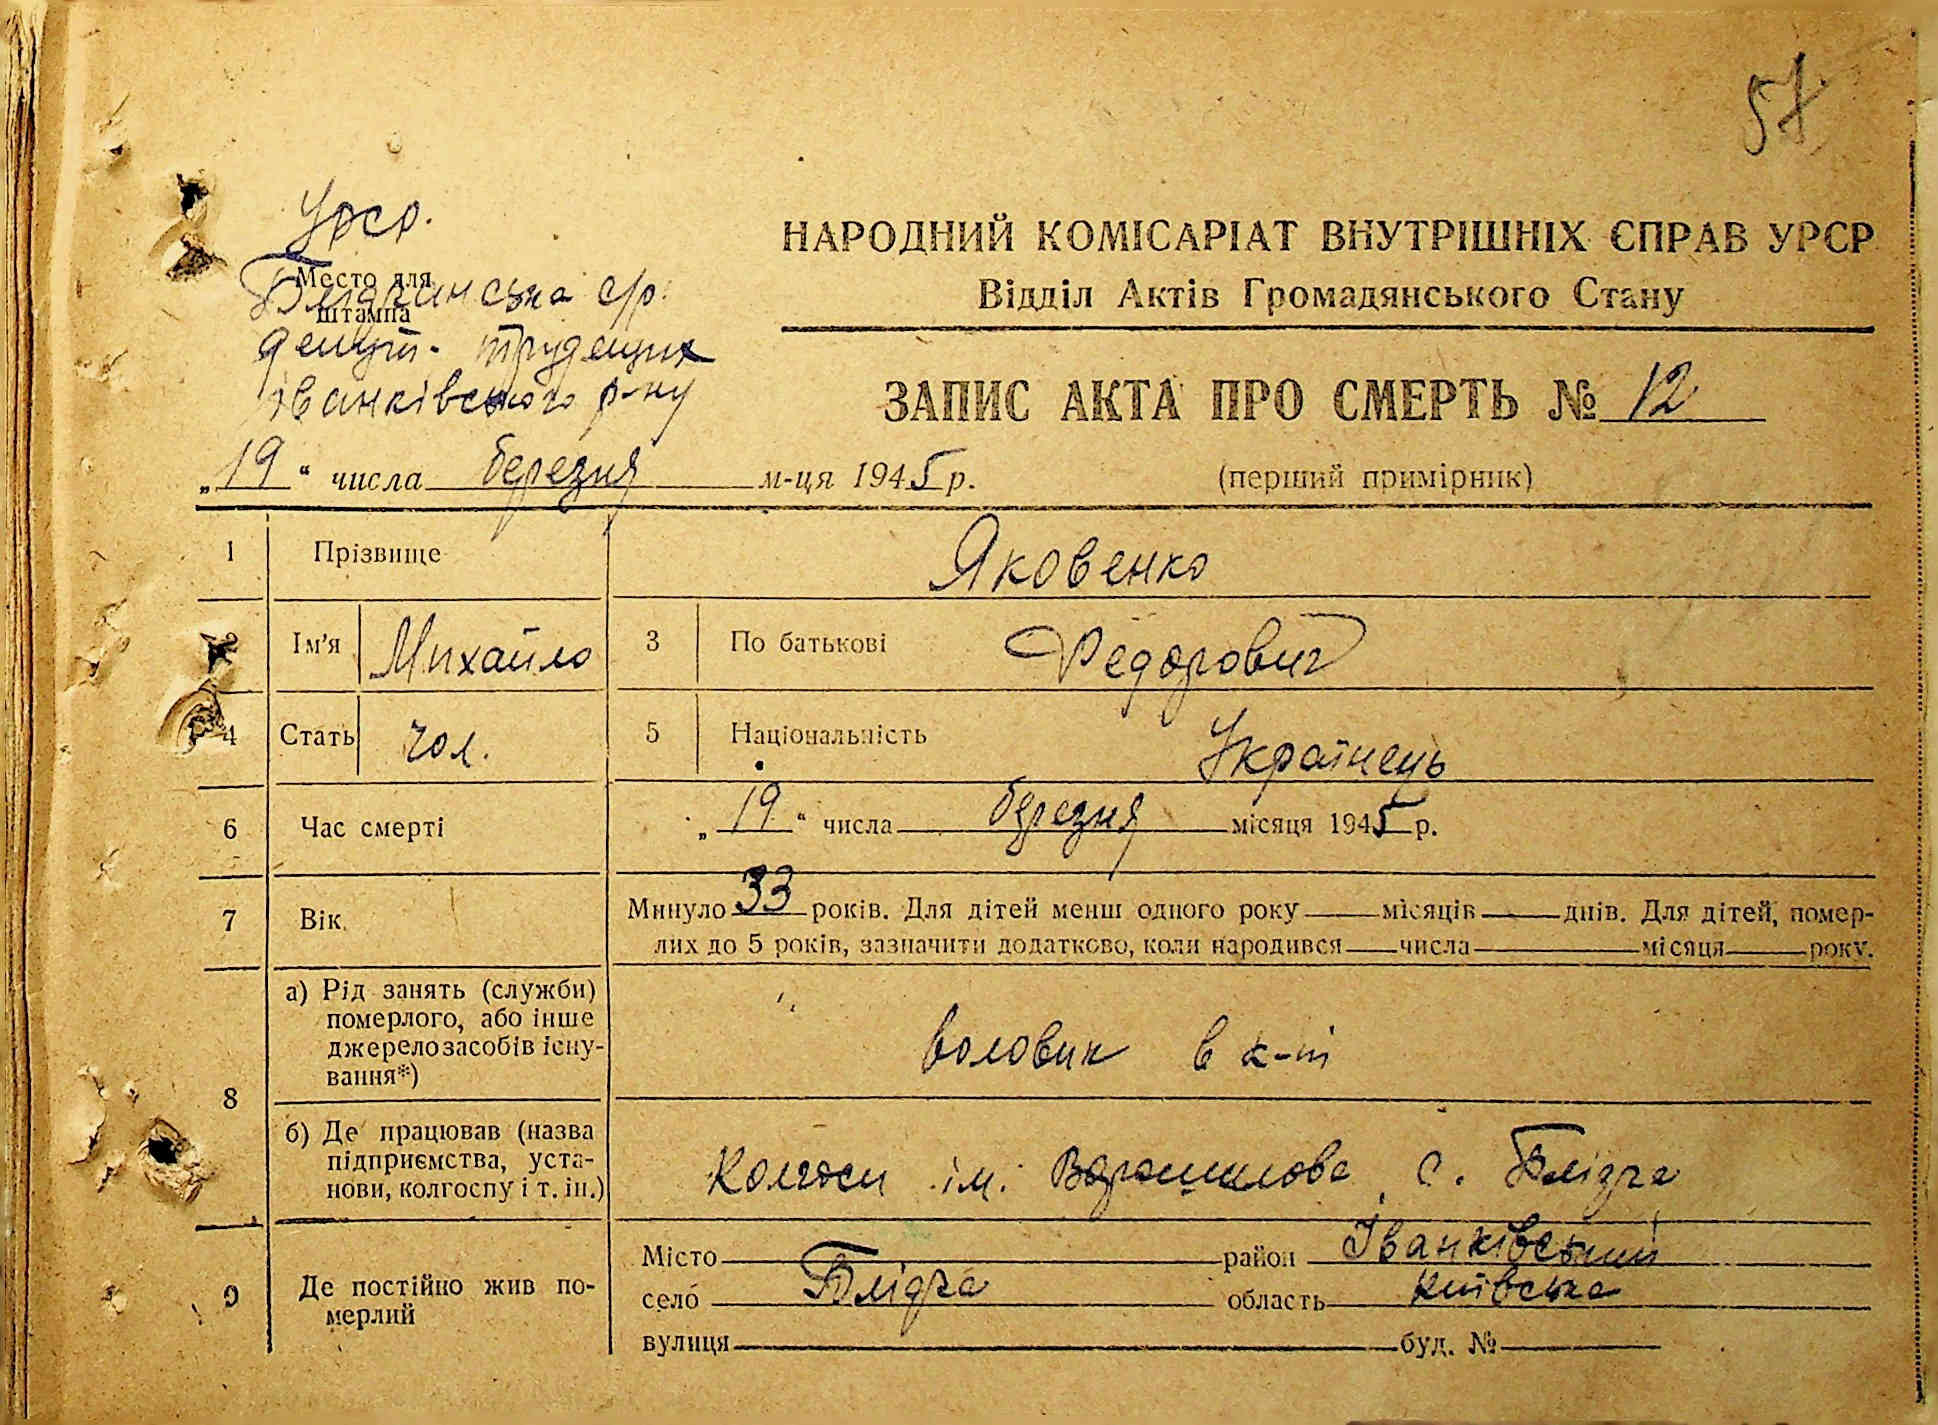 57
Урср.
Место для
штампа
Блідчинська с/р.
депут. трудящих
іванківського р-ну
НАРОДНИЙ КОМІСАРІАТ ВНУТРІШНІХ СПРАВ УРСР
Відділ Актів Громадянського Стану
ЗАПИС АКТА ПРО СМЕРТЬ № 12
„19“ числа березня м-ця 1945 р. (перший примірник)
1 Прізвище Яковенко
2 Ім'я Михайло 3 По батькові Федорович
4 Стать чол. 5 Національність Українець
6 Час смерті „19“ числа березня місяця 1945 р.
7 Вік. Минуло 33 років. Для дітей менш одного року місяців днів. Для дітей, помер-
лих до 5 років, зазначити додатково, коли народився числа місяця року.
8 а) Рід занять (служби)
померлого, або інше
джерело засобів існу-
вання*)
воловик в к-ті
б) Де працював (назва
підприємства, уста-
нови, колгоспу і т. ін.)
Колгосп ім. Ворошилова с. Блідча
9 Де постійно жив по-
мерлий
Місто район Іванківський
село Блідча область Київська
вулиця буд. №